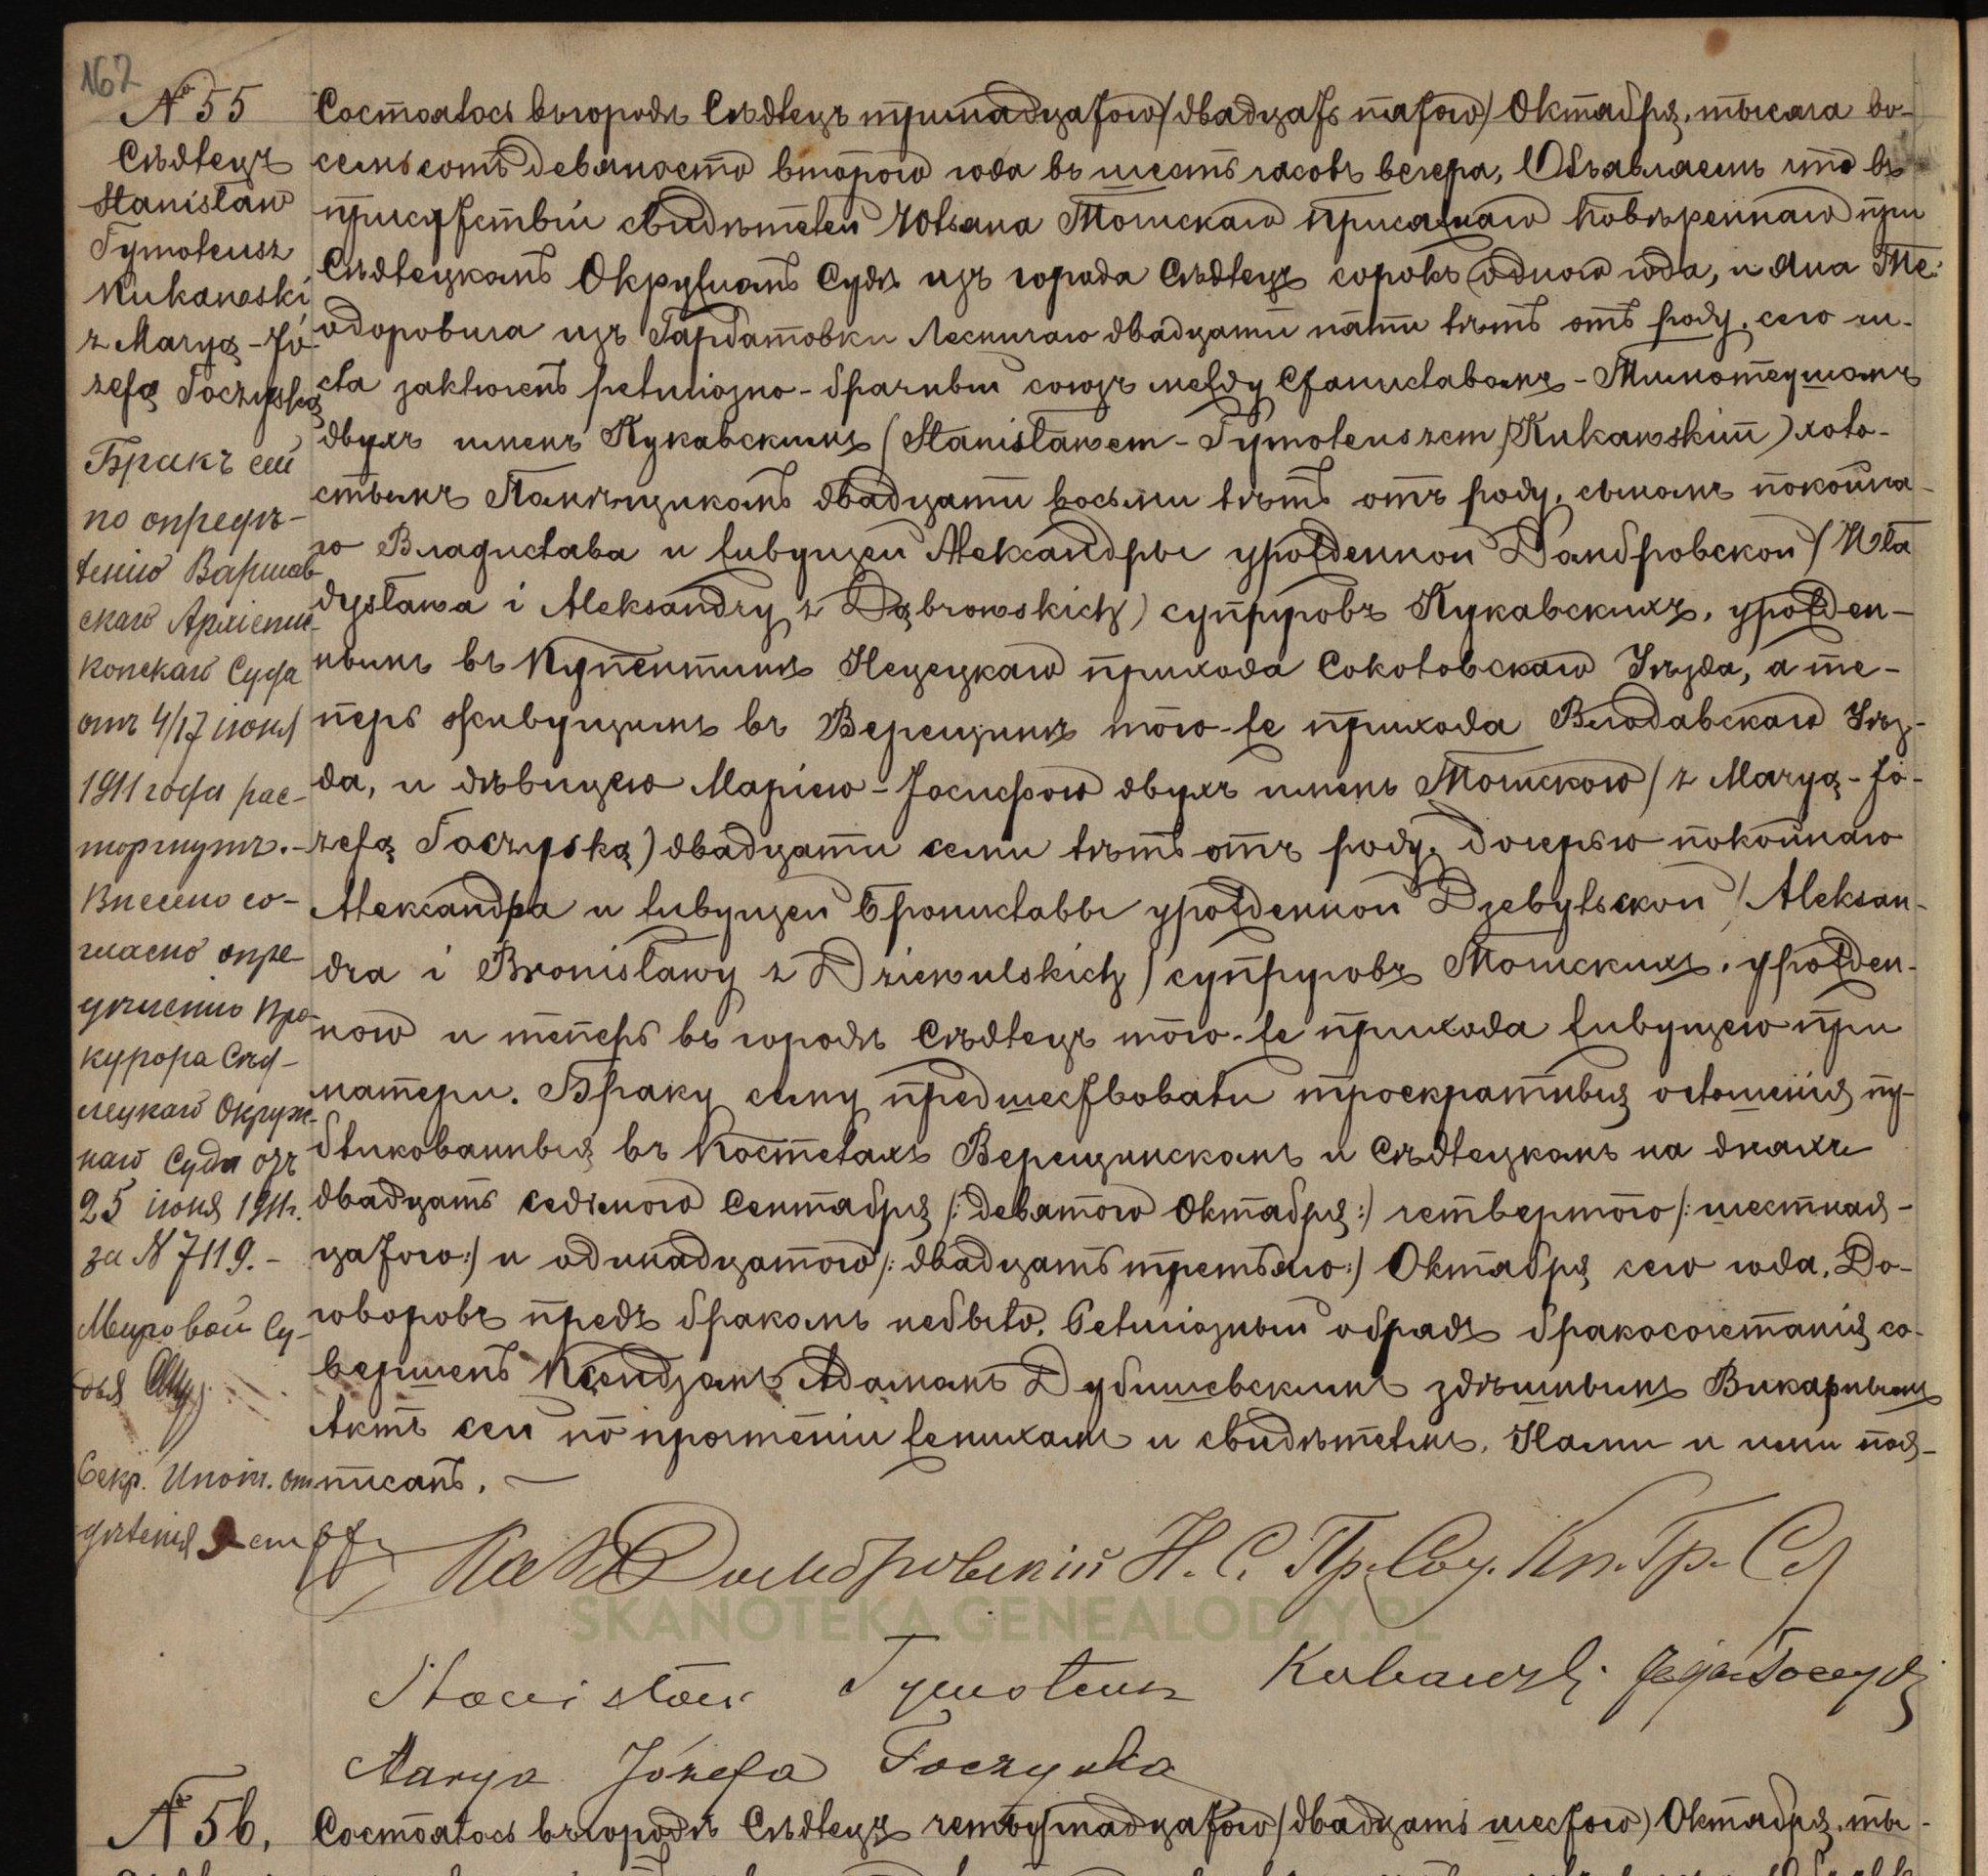 167
№ 55
Сѣдлецъ
Stanisław
Tymoteusz
Kukawski
z Maryą-Jó-
zefą Toczyską
Бракъ сей
по опредѣ-
ленію Варшав-
скаго Архіепис-
копскаго Суда
отъ 4/17 іюня
1911 года рас-
торгнутъ.-
Внесено со-
гласно опре-
дѣленію Про-
курора Сѣд-
лецкаго Окруж-
наго Суда отъ
25 іюня 1911г.
за № 7119.-
Мировой Су-
дья
Секр. Ипот. от-
дѣленія
Состоялось въ городѣ Сѣдлецъ тринадцатого/двадцать пятого) Октября, тысяча во-
семьсотъ девяносто второго года въ шесть часовъ вечера, Объявляемъ что въ
присутствіи свидѣтелей Юльяна Точискаго присяжнаго повѣреннаго при
Сѣдлецкомъ Окружномъ Судѣ изъ города Сѣдлецъ сорокъ одного года, и Яна Те-
одоровича изъ Гардатовки Лесничаго двадцати пяти лѣтъ отъ роду, сего чи-
сла заключенъ религіозно-брачный союзъ между Станиславомъ-Тимотеушомъ
двухъ именъ Кукавскимъ (Stanisławem-Tymoteuszem Kukawskim) холо-
стымъ Помѣщикомъ двадцати восьми лѣтъ отъ роду, сыномъ покойна-
го Владислава и живущей Александры урожденной Домбровской / Wła
dysława i Aleksandry z Dąbrowskich) супруговъ Кукавскихъ, урожден-
нымъ въ Купентинѣ Нецецкаго прихода Соколовскаго Уѣзда, а те-
перь живущимъ въ Верещинѣ того-же прихода Влодавскаго Уѣз-
да, и дѣвицею Маріею-Іосифою двухъ именъ Точискою / z Maryą-Jó-
zefą Toczyską) двадцати семи лѣтъ отъ роду, дочерью покойнаго
Александра и живущей Брониславы урожденной Дзевульской / Aleksan-
dra i Bronisławy z Dziewulskich) супруговъ Точискихъ, урожден-
ною и теперь въ городѣ Сѣдлецъ того-же прихода живущею при
матери. Браку сему предшествовали троекратныя оглошенія пу-
бликованныя въ костелахъ Верещинскомъ и Сѣдлецкомъ на дняхъ
двадцать седьмого Сентября /:девятого Октября:) четвертого /:шестнад-
цатого:) и одинадцатого /:двадцать третьяго:) Октября сего года. До-
говоровъ предъ бракомъ небыло. Религіозный обрядъ бракосочетанія со-
вершенъ Ксендзомъ Адамомъ Дубишевскимъ здѣшнымъ Викарнымъ
Актъ сей по прочтеніи женихами и свидѣтелями, Нами и ими под-
писанъ.
Домбровскій Н. С. Пр. Сод. Кн. Гр. С
Stanisław Tymoteusz Kukawski
Marya Józefa Toczyska
№ 56.
Состоялось въ городѣ Сѣдлецъ четырнадцатого/двадцать шестого) Октября, ты-